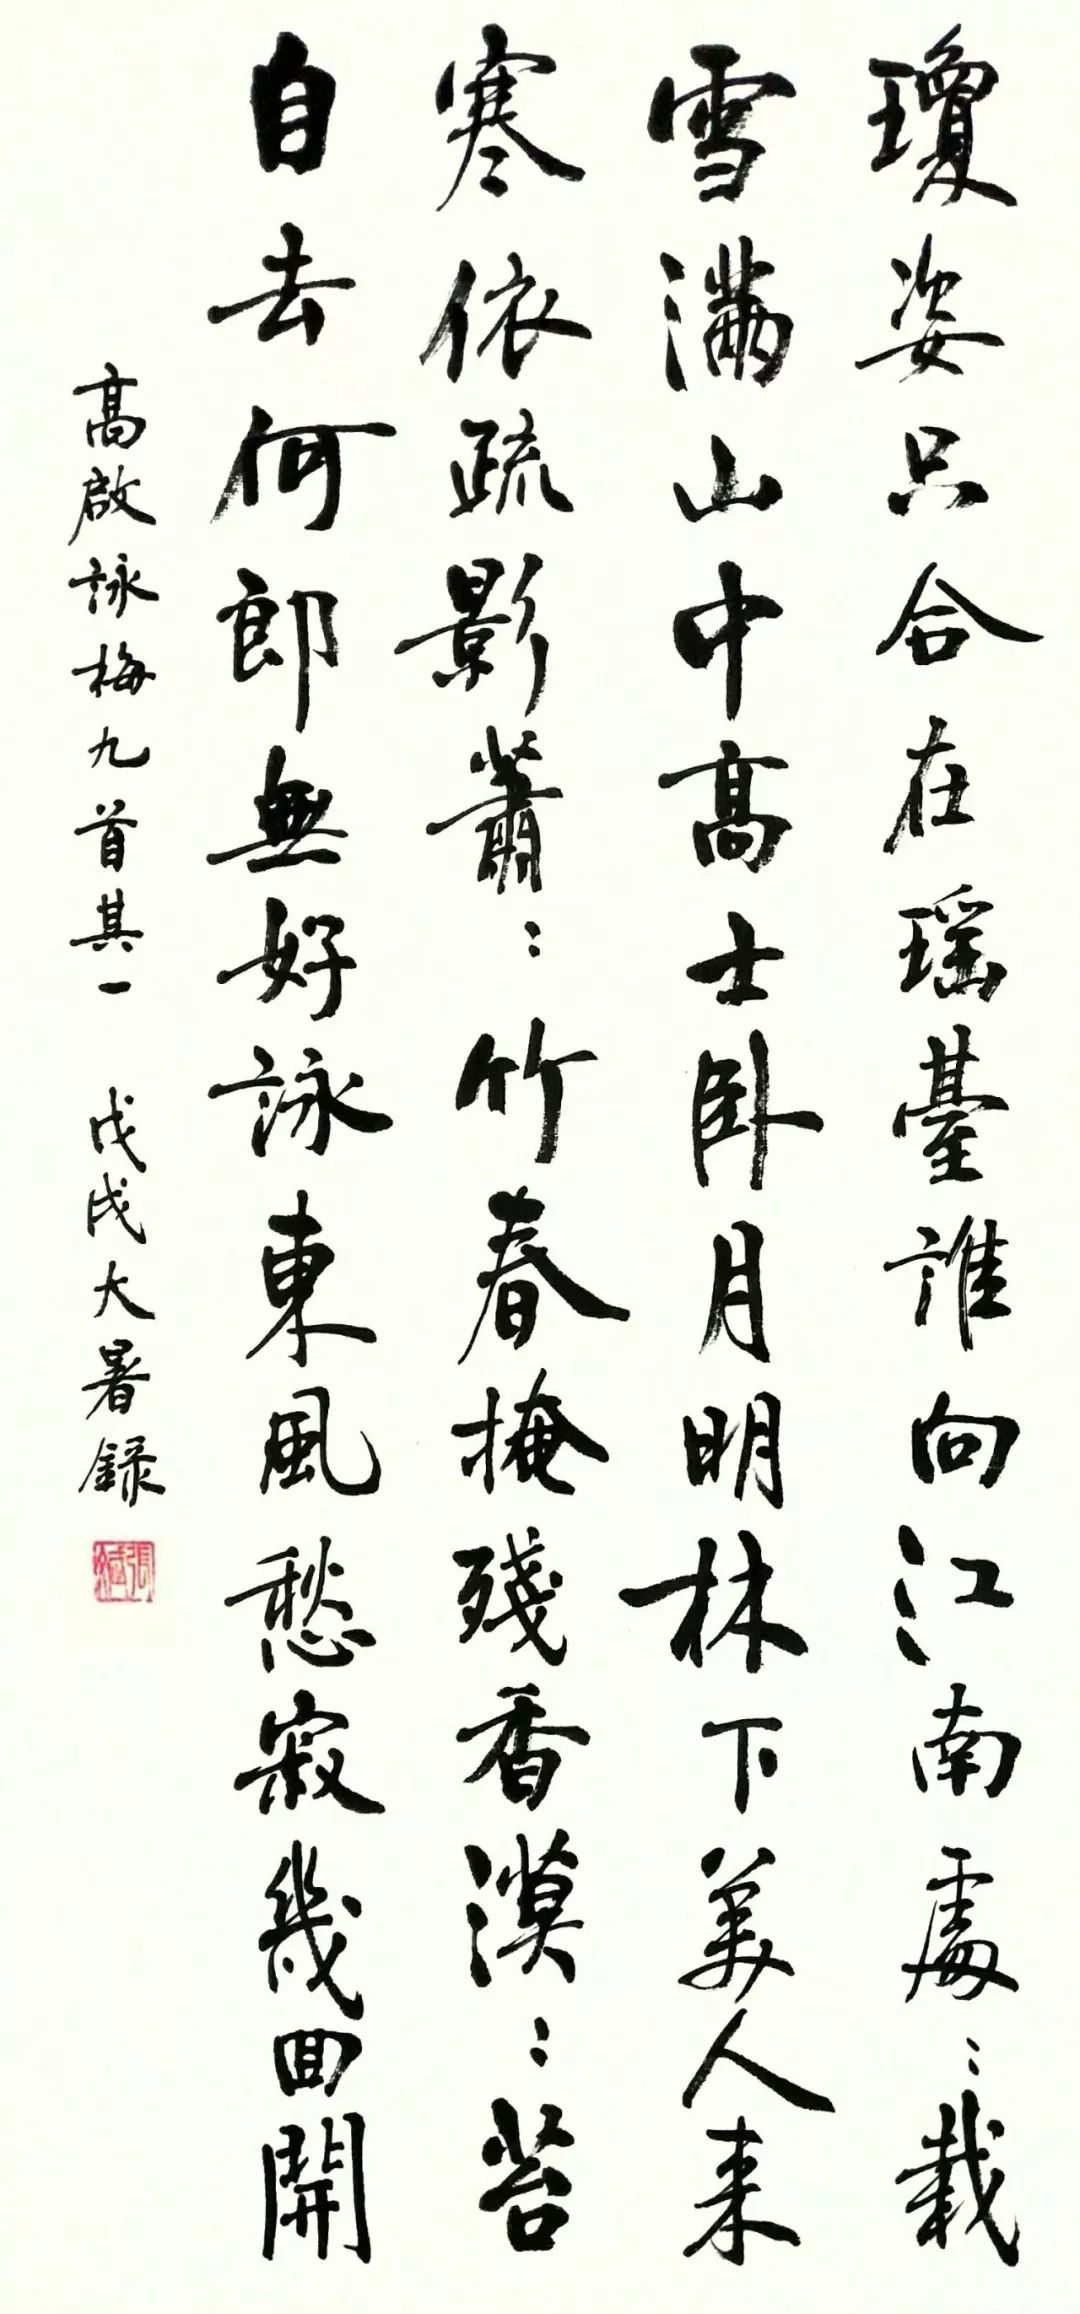 瓊姿只合在瑶臺誰向江南處〻栽
雪滿山中高士卧月明林下美人来
寒依疏影蕭〻竹春掩殘香漠〻苔
自去何郎無好詠東風愁寂幾回開
高啟詠梅九首其一 戊戌大暑録